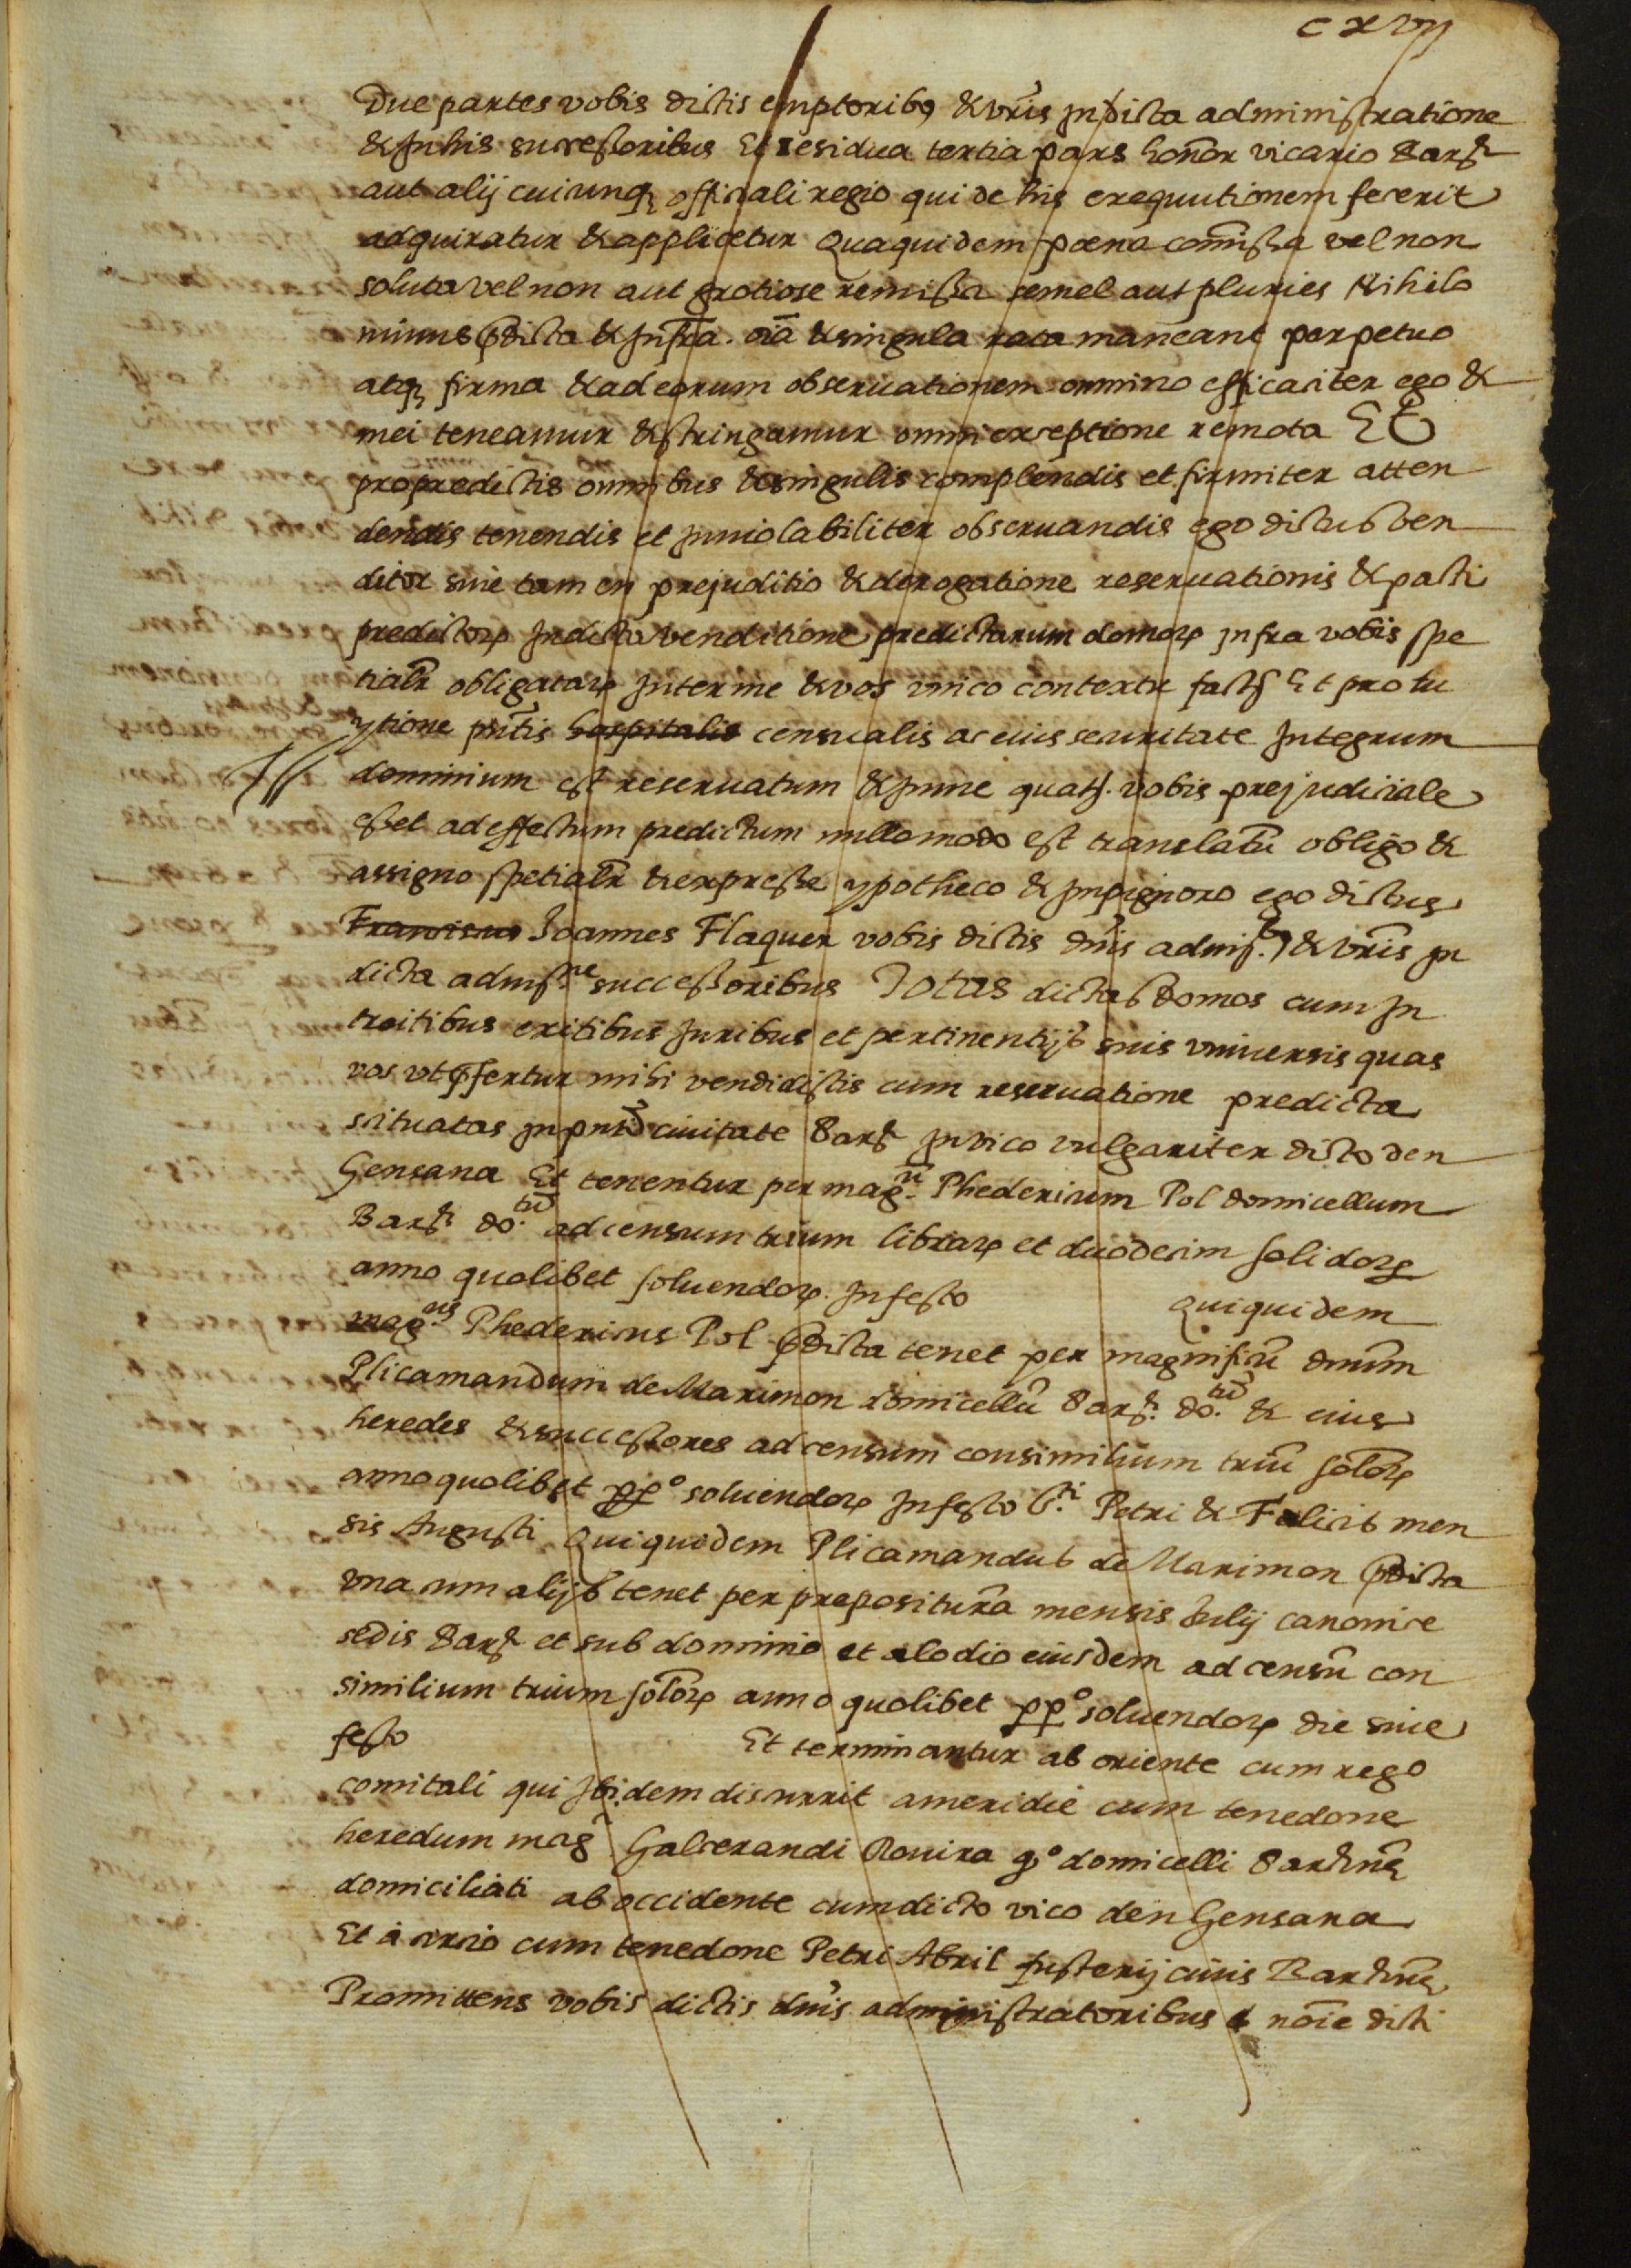 cxvij
Due partes vobis dictis emptoribꝰ & vr̃is Jn dicta administratione
& Jn his successoribus Et residua tertia pars honor vicario Barꝗ
aut alij cuicunqꝫ officiali regio qui de his exequutionem fecerit
adquiratur & applicetur Quaquidem pœna com̃issa vel non
soluta vel non aut gratiose remissa semel aut pluries Nihilo
minus p̃dicta & Jnfr̃a. oĩa & singula rata maneant perpetuo
atqꝫ firma & ad eorum obseruationem omnino efficaciter ego &
mei teneamur & stringamur omni exceptione remota Et
pro predictis omnibus & singulis complendis et firmiter atten
dendis tenendis et Jnuiolabiliter obseruandis ego dictus ven
ditor sine tamen prejuditio & derogatione reseruationis & pacti
predictoꝝ Jn dicta venditione predictarum domoꝝ infra vobis spe
tialr̃ obligataꝝ Jnter me & vos vnico contextu factꝭ Et pro lu
ytione pñtis hospitalis censualis ac eius securitate Jntegrum
dominium est reseruatum & Jn me quatꝭ. vobis prejudiciale
esset ad effectum predictum nullo modo est translatũ obligo &
assigno spetialr̃ & expresse ypotheco & Jnpignoro ego dictus
Franciscus Joannes Flaquer vobis dictis dñis admĩ.bꝰ & vr̃is Jn
dicta admĩ.ne successoribus Totas dictas domos cum Jn
troitibus exitibus Juribus et pertinentijs suis vniuersis quas
vos vt p̃fertur mihi vendidistis cum reseruatione predicta
scituatas Jn pñti ciuitate Barꝗ Jn vico vulgariter dicto den
Gensana Et tenentur per mag.um Phedericum Pol domicellum
Barꝗ do.tũ ad censum trium libraꝝ et duodecim solidoꝝ
anno quolibet soluendoꝝ. Jn festo Quiquidem
mag.cus Phedericus Pol p̃dicta tenet per magnificũ dñum
Plicamandum de Marimon domicellũ Barꝗ. do.tũ & eius
heredes & successores ad censum consimilium triũ solõꝝ
anno quolibet ꝑꝑ° soluendoꝝ Jn festo S.ti Petri & Felicis men
sis Augusti Quiquidem Plicamandus de Marimon p̃dicta
vna cum alijs tenet per preposituram mensis Julij canonice
sedis Barꝗ et sub dominio et alodio eiusdem ad censũ con
similium trium solõꝝ anno quolibet ꝑꝑ° soluendoꝝ die siue
festo Et terminantur ab oriente cum rego
comitali qui Jbidem discurrit a meridie cum tenedone
heredum mag.ci Galcerandi Rouira q.° domicelli Barcin̄e
domiciliati ab occidente cum dicto vico den Gensana
Et à circio cum tenedone Petri Abril fusterij ciuis Barcin̄e
Promittens vobis dictis dñis administratoribus nõie dicti